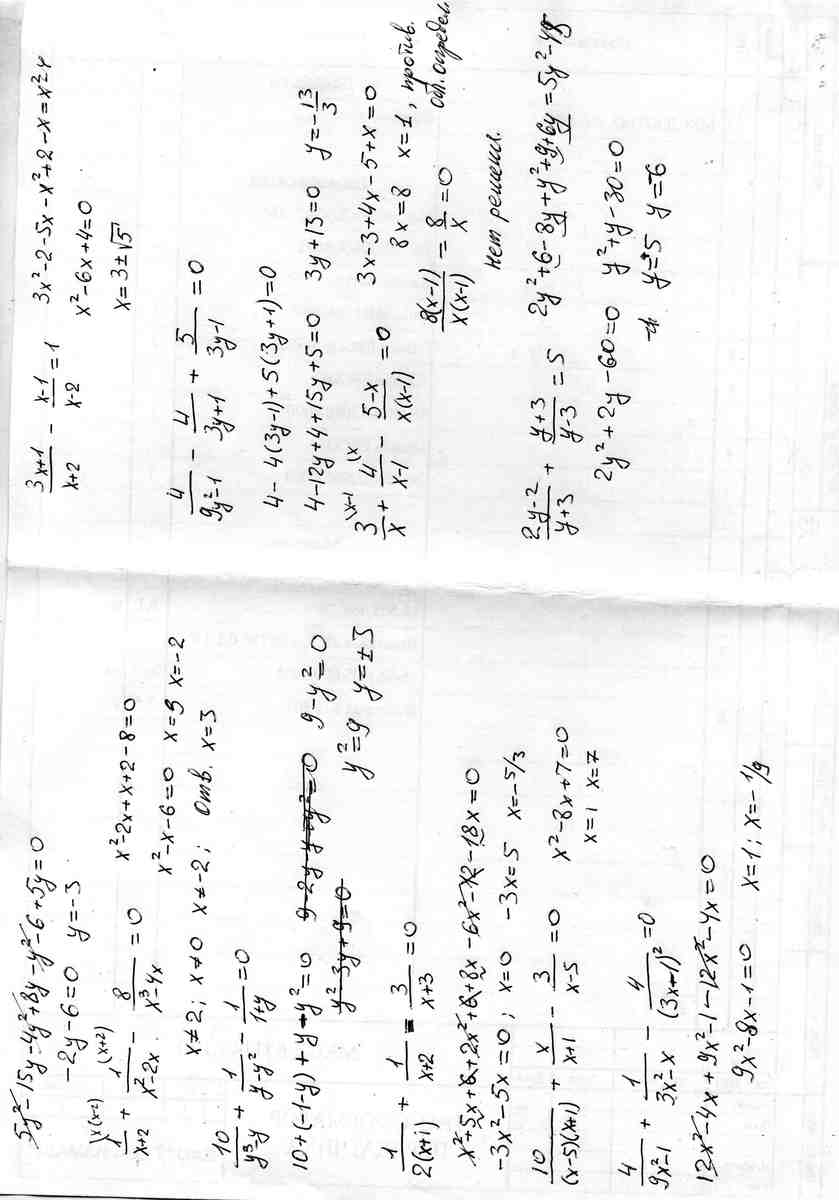 5y² - 15y - 4y² + 8y - y² - 6 + 5y = 0
-2y - 6 = 0 y = -3
x(x-2) (x+2)
1/(x+2) + 1/(x²-2x) - 8/(x³-4x) = 0 x² - 2x + x + 2 - 8 = 0
x² - x - 6 = 0 x = 3 x = -2
x ≠ 2; x ≠ 0 x ≠ -2; отв. x = 3
10/(y³-y) + 1/(y-y²) - 1/(1+y) = 0
10 + (-1-y) + y - y² = 0 9 - 2y - y + y² = 0 9 - y² = 0
y² - 3y + 9 = 0 y² = 9 y = ±3
1/(2(x+1)) + 1/(x+2) = 3/(x+3) = 0
x² + 5x + 6 + 2x² + 6 + 8x - 6x² - 12 - 18x = 0
-3x² - 5x = 0; x = 0 -3x = 5 x = -5/3
10/((x-5)(x+1)) + x/(x+1) - 3/(x-5) = 0 x² - 8x + 7 = 0
x = 1 x = 7
4/(9x²-1) + 1/(3x²-x) - 4/(3x+1)² = 0
12x² - 4x + 9x² - 1 - 12x² - 4x = 0
9x² - 8x - 1 = 0 x = 1; x = -1/9
(3x+1)/(x+2) - (x-1)/(x-2) = 1 3x² - 2 - 5x - x² + 2 - x = x² - 4
x² - 6x + 4 = 0
x = 3 ± √5
4/(9y²-1) - 4/(3y+1) + 5/(3y-1) = 0
4 - 4(3y-1) + 5(3y+1) = 0
4 - 12y + 4 + 15y + 5 = 0 3y + 13 = 0 y = -13/3
\x-1 (x
3/x + 4/(x-1) - (5-x)/(x(x-1)) = 0 3x - 3 + 4x - 5 + x = 0
8x = 8 x = 1, против.
обл. определ.
8(x-1)/(x(x-1)) = 8/x = 0
нет решения.
(2y-2)/(y+3) + (y+3)/(y-3) = 5 2y² + 6 - 8y + y² + 9 + 6y = 5y² - 45
2y² + 2y - 60 = 0 y² + y - 30 = 0
y = 5 y = -6